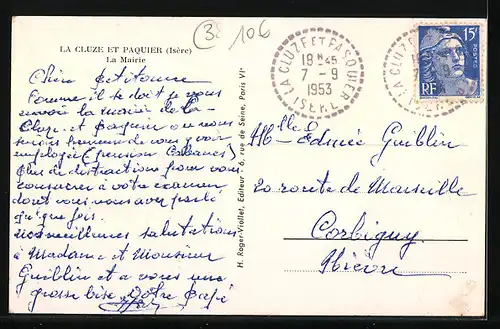 LA CLUZE ET PAQUIER (Isère)
La Mairie
38
106
LA CLUZE ET PASQUIER
18H45
7-9
1953
ISÈRE
15F
POSTES
RF
Chère
Comme il se doit je vous
envoie la mairie de la
Cluze et Paquier ou nous
serions heureuse de vous y voir
employée (pension Cabanes)
plus de distractions pour vous
consacrer à votre examen
dont vous nous avez parlé
quelque fois.
Meilleures salutations
à Madame et Monsieur
Guiblin et a vous une
grosse bise Votre
H. Roger-Viollet, Editeur - 6, rue de Seine, Paris VIe
Mlle Edmée Guiblin
20 route de Marseille
Corbigny
Nièvre